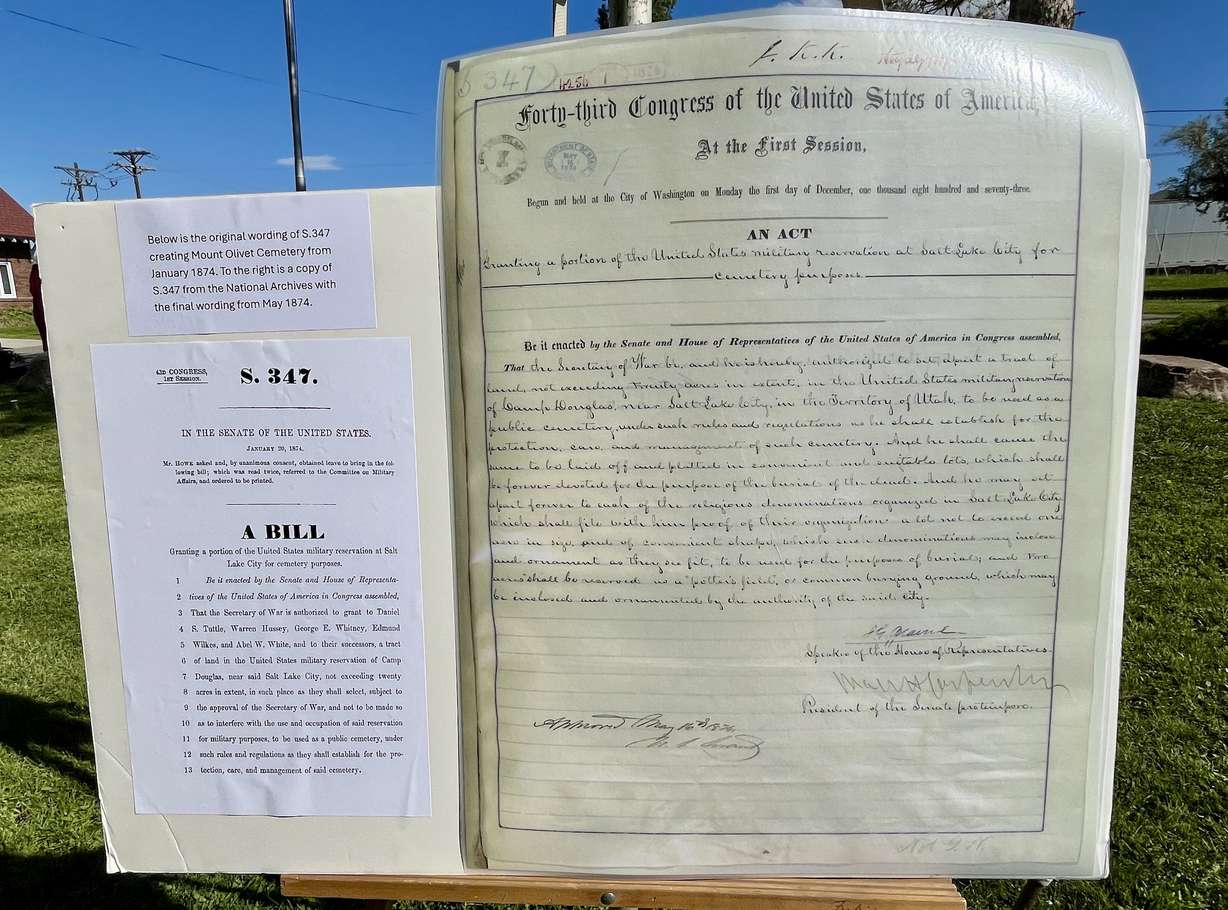 Below is the original wording of S.347
creating Mount Olivet Cemetery from
January 1874. To the right is a copy of
S.347 from the National Archives with
the final wording from May 1874.
43D CONGRESS,
1ST SESSION.
S. 347.
IN THE SENATE OF THE UNITED STATES.
JANUARY 20, 1874.
Mr. HOWE asked and, by unanimous consent, obtained leave to bring in the fol-
lowing bill; which was read twice, referred to the Committee on Military
Affairs, and ordered to be printed.
A BILL
Granting a portion of the United States military reservation at Salt
Lake City for cemetery purposes.
1 Be it enacted by the Senate and House of Representa-
2 tives of the United States of America in Congress assembled,
3 That the Secretary of War is authorized to grant to Daniel
4 S. Tuttle, Warren Hussey, George E. Whitney, Edmund
5 Wilkes, and Abel W. White, and to their successors, a tract
6 of land in the United States military reservation of Camp
7 Douglas, near said Salt Lake City, not exceeding twenty
8 acres in extent, in such place as they shall select, subject to
9 the approval of the Secretary of War, and not to be made so
10 as to interfere with the use and occupation of said reservation
11 for military purposes, to be used as a public cemetery, under
12 such rules and regulations as they shall establish for the pro-
13 tection, care, and management of said cemetery.
S 347
Forty-third Congress of the United States of America,
At the First Session,
Begun and held at the City of Washington on Monday the first day of December, one thousand eight hundred and seventy-three.
AN ACT
Granting a portion of the United States military reservation at Salt Lake City for
cemetery purposes
Be it enacted by the Senate and House of Representatives of the United States of America in Congress assembled,
That the Secretary of War be, and he is hereby, authorized to set apart a tract of
land, not exceeding twenty acres in extent, in the United States military reservation
of Camp Douglas, near Salt Lake City, in the Territory of Utah, to be used as a
public cemetery, under such rules and regulations as he shall establish for the
protection, care, and management of such cemetery. And he shall cause the
same to be laid off and platted in convenient and suitable lots, which shall
be forever devoted for the purpose of the burial of the dead. And he may set
apart forever to each of the religious denominations organized in Salt Lake City
which shall file with him proof of their organization a lot not to exceed one
acre in size, and of convenient shape, which such denominations may inclose
and ornament as they see fit, to be used for the purposes of burials; and two
acres shall be reserved as a "potter's field," or common burying ground, which may
be inclosed and ornamented by the authority of the said city.
Speaker of the House of Representatives.
President of the Senate pro tempore.
Approved May 16th 1874
U. S. Grant